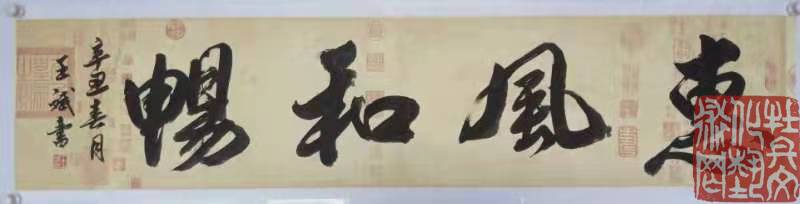 惠風和暢
辛丑春月
王斌書